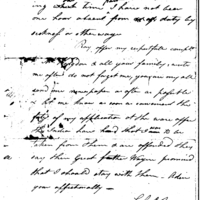 him. I have not been
one hour absent from duty by
sickness or otherways
Pray offer my respectful compl
& all your family; write
me often do not forget me, you can all
send me newspapers as often as possible
& let me know as soon as convenient the
fate of my application at the war office
The Indians have heard that I am to be
taken from them & are offended they
say their Great father Wayne promised
that I should stay with them. Adieu
your affectionately